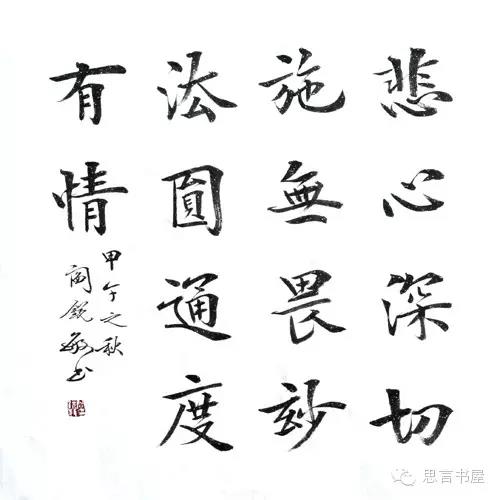 悲心深切
施無畏玅
法圓通度
有情
甲午之秋
阎锐敏书
思言书屋